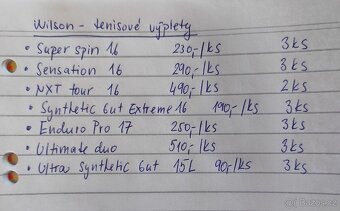 Wilson - tenisové výplety
• Super spin 16 230,-/ks 3ks
• Sensation 16 290,-/ks 3ks
• NXT tour 16 490,-/ks 2ks
• Synthetic Gut Extreme 16 190,-/ks 3ks
• Enduro Pro 17 250,-/ks 3ks
• Ultimate duo 510,-/ks 3ks
• Ultra Synthetic Gut 15L 90,-/ks 3ks
Bazoš.cz